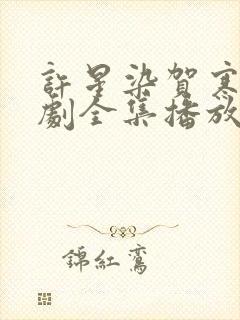 許星染賀寒
劇全集播放
錦紅鸞